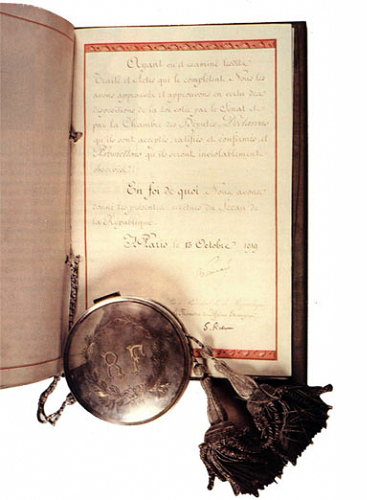 Ayant vu et examiné lesdits
Traité et Actes qui le complètent Nous les
avons approuvés et approuvons en vertu des
dispositions de la loi votée par le Sénat et
par la Chambre des Députés Déclarons
qu'ils sont acceptés, ratifiés et confirmés, et
Promettons qu'ils seront inviolablement
observés.
En foi de quoi Nous avons
donné les présentes, revêtues du Sceau de
la République.
À Paris le 13 Octobre 1919
Par le Président de la République
Le Ministre des Affaires Étrangères
S. Pichon
RF